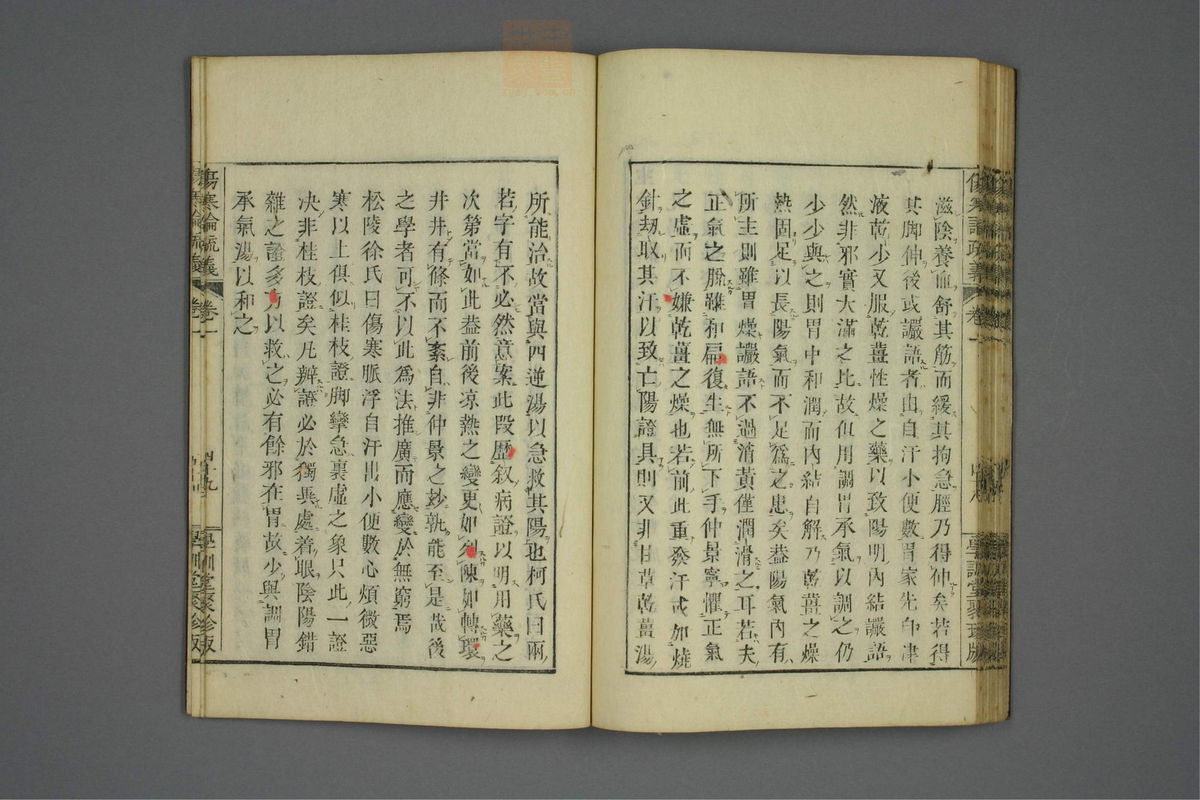 滋陰養血舒其筋而緩其拘急脛乃得伸矣若得
其脚伸後或讝語者由自汗小便數胃家先自津
液乾少又服乾薑性燥之藥以致陽明內結讝語
然非邪實大滿之比故但用調胃承氣以調之仍
少少與之則胃中和潤而內結自解乃乾薑之燥
熱固足以長陽氣而不足爲之患矣葢陽氣內有
所主則雖胃燥讝語不過消黃僅潤滑之耳若夫
正氣之脫雖和扁復生無所下手仲景寧懼正氣
之虛而不嫌乾薑之燥也若前此重發汗或加燒
針劫取其汗以致亡陽證具則又非甘草乾薑湯
所能治故當與四逆湯以急救其陽也柯氏曰兩
若字有不必然意案此段歷叙病證以明用藥之
次第當如此葢前後凉熱之變更如列陳如轉環
井井有條而不紊自非仲景之妙孰能至是哉後
之學者可不以此爲法推廣而應變於無窮焉
松陵徐氏曰傷寒脈浮自汗出小便數心煩微惡
寒以上俱似桂枝證脚攣急裏虛之象只此一證
决非桂枝證矣凡辨證必於獨異處着眼陰陽錯
雜之證多方以救之必有餘邪在胃故少與調胃
承氣湯以和之
傷寒論疏義 卷一 四十九 學訓堂聚珍版